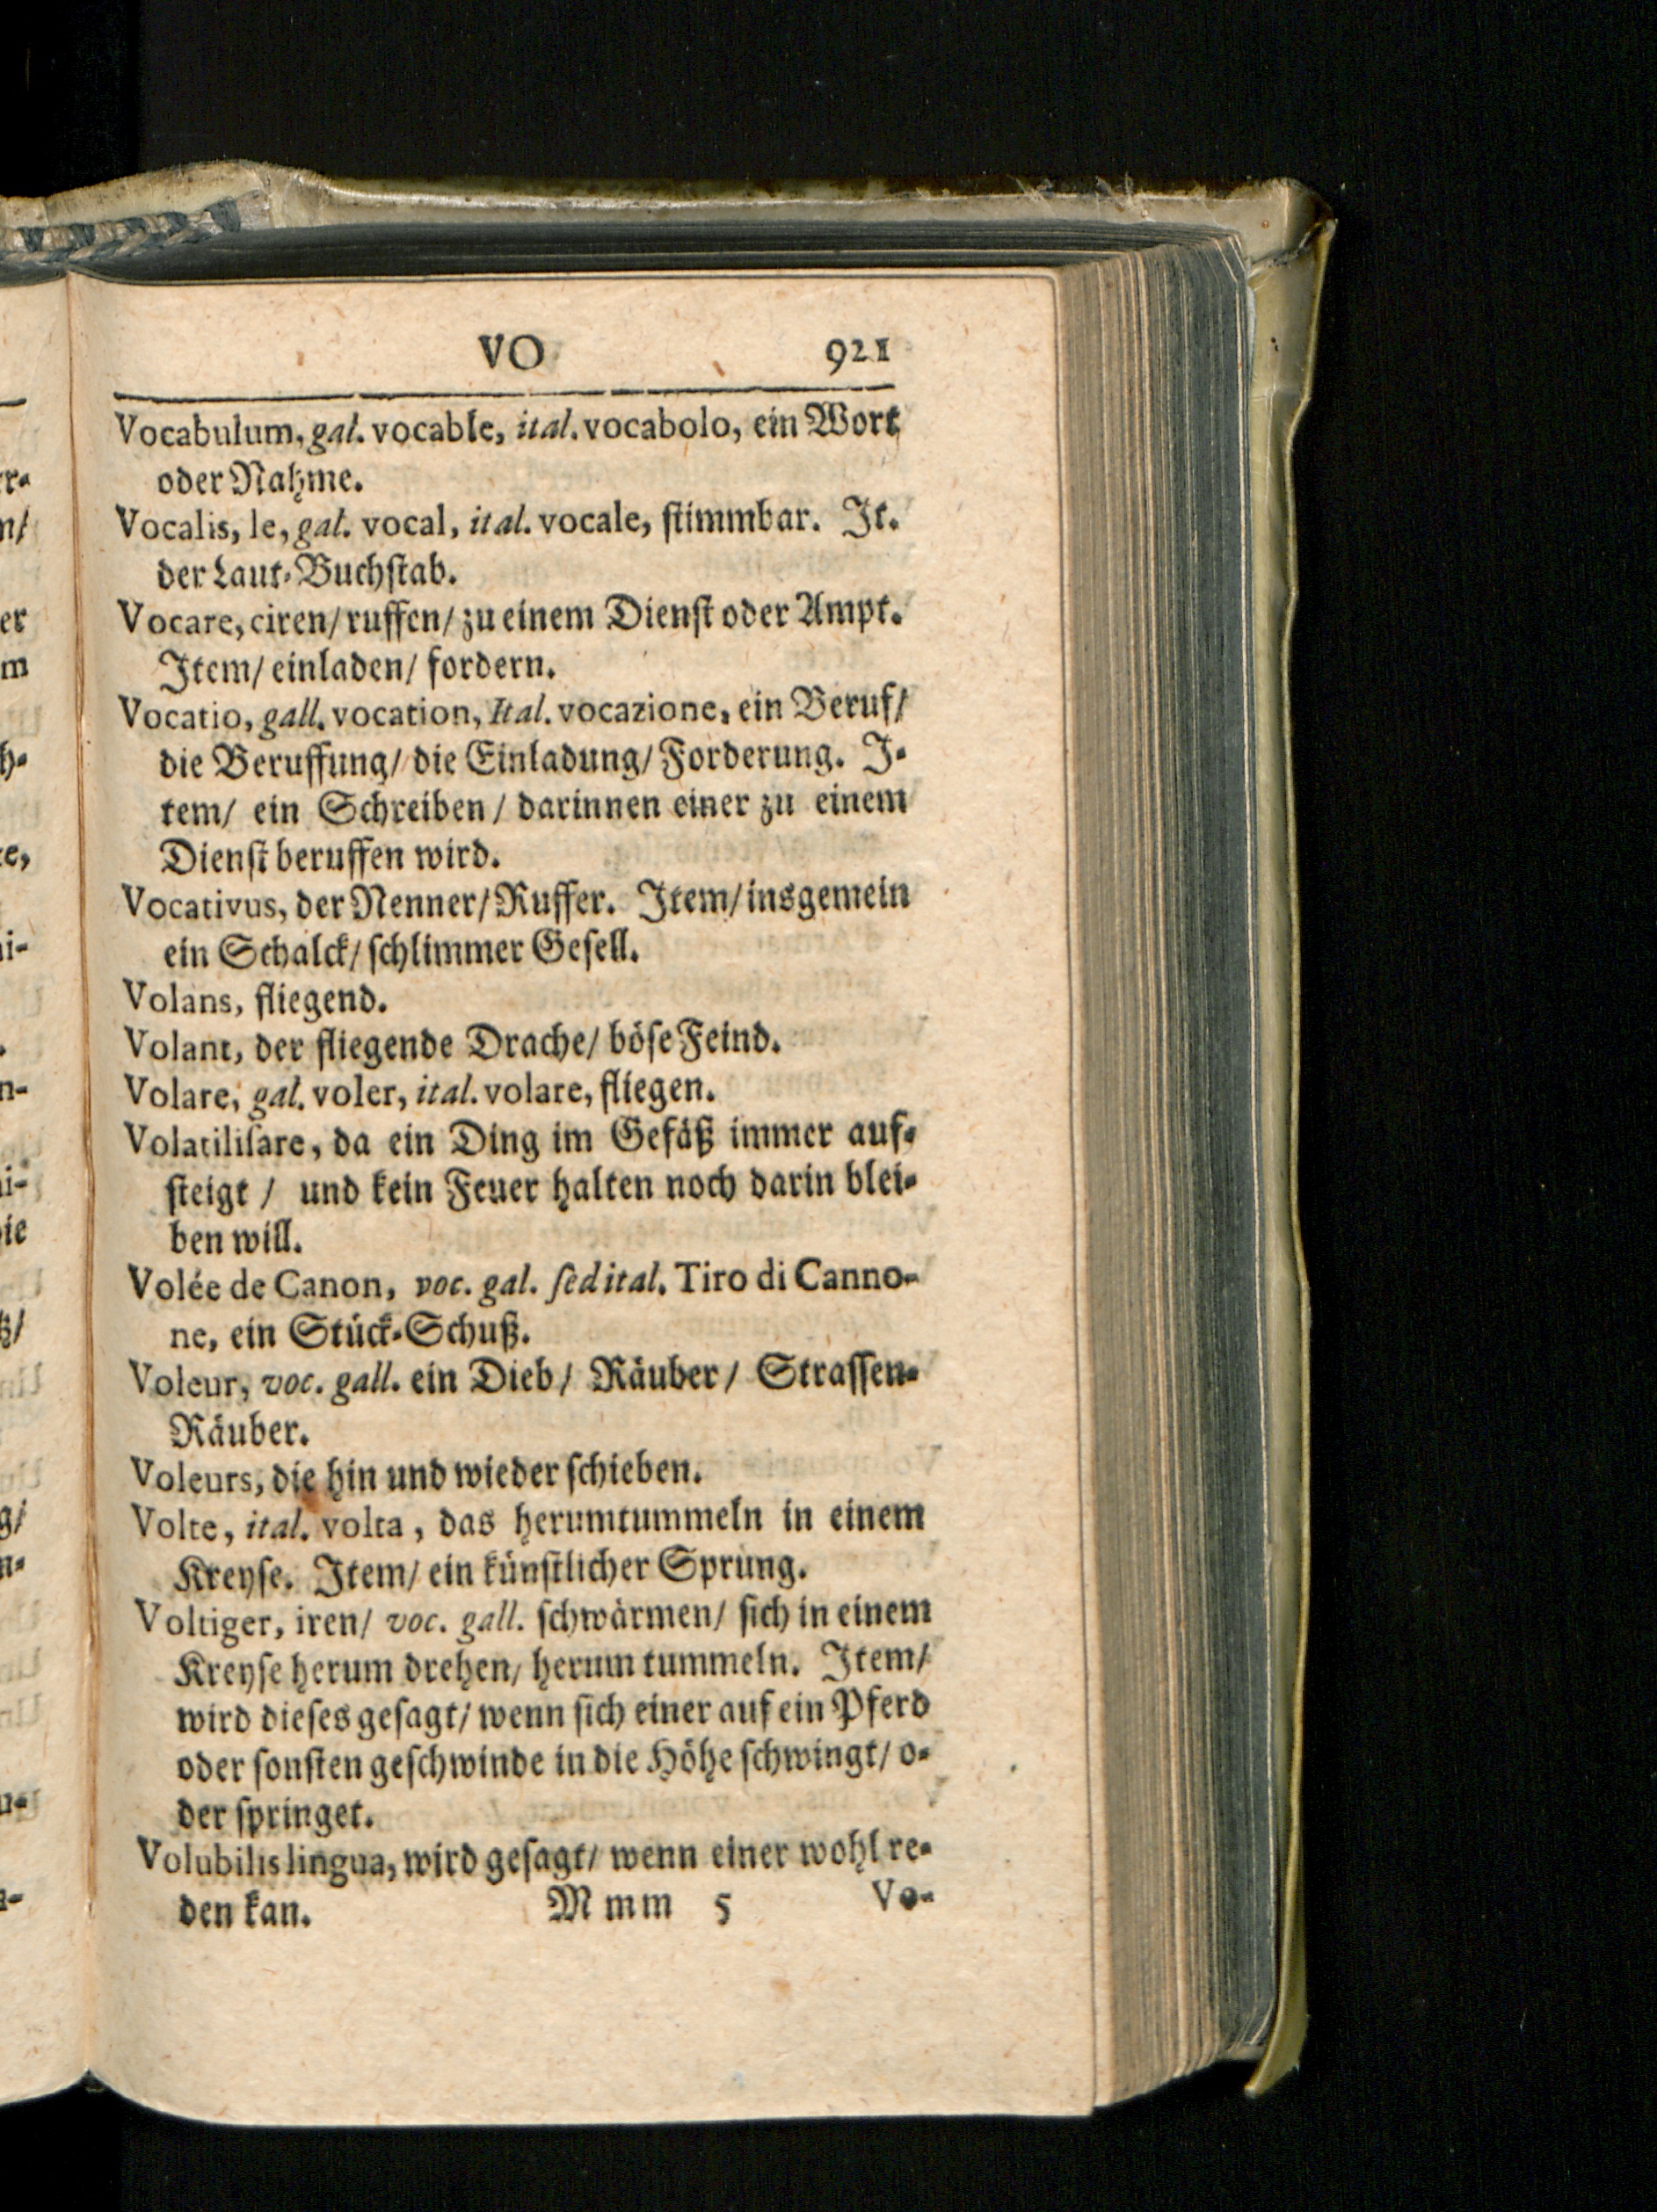 VO 921
Vocabulum, gal. vocable, ital. vocabolo, ein Wort
oder Nahme.
Vocalis, le, gal. vocal, ital. vocale, ſtimmbar. It.
der Laut-Buchſtab.
Vocare, ciren/ ruffen/ zu einem Dienſt oder Ampt.
Item/ einladen/ fordern.
Vocatio, gall. vocation, Ital. vocazione, ein Beruf/
die Beruffung/ die Einladung/ Forderung. I-
tem/ ein Schreiben / darinnen einer zu einem
Dienſt beruffen wird.
Vocativus, der Nenner/ Ruffer. Item/ insgemein
ein Schalck/ ſchlimmer Geſell.
Volans, fliegend.
Volant, der fliegende Drache/ böſe Feind.
Volare, gal. voler, ital. volare, fliegen.
Volatiliſare, da ein Ding im Gefäß immer auf-
ſteigt / und kein Feuer halten noch darin blei-
ben will.
Volée de Canon, voc. gal. ſed ital. Tiro di Canno-
ne, ein Stück-Schuß.
Voleur, voc. gall. ein Dieb/ Räuber/ Straſſen-
Räuber.
Voleurs, die hin und wieder ſchieben.
Volte, ital. volta, das herumtummeln in einem
Kreyſe. Item/ ein künſtlicher Sprung.
Voltiger, iren/ voc. gall. ſchwärmen/ ſich in einem
Kreyſe herum drehen/ herum tummeln. Item/
wird dieſes geſagt/ wenn ſich einer auf ein Pferd
oder ſonſten geſchwinde in die Höhe ſchwingt/ o-
der ſpringet.
Volubilis lingua, wird geſagt/ wenn einer wohl re-
den kan. Mmm 5 Vo-